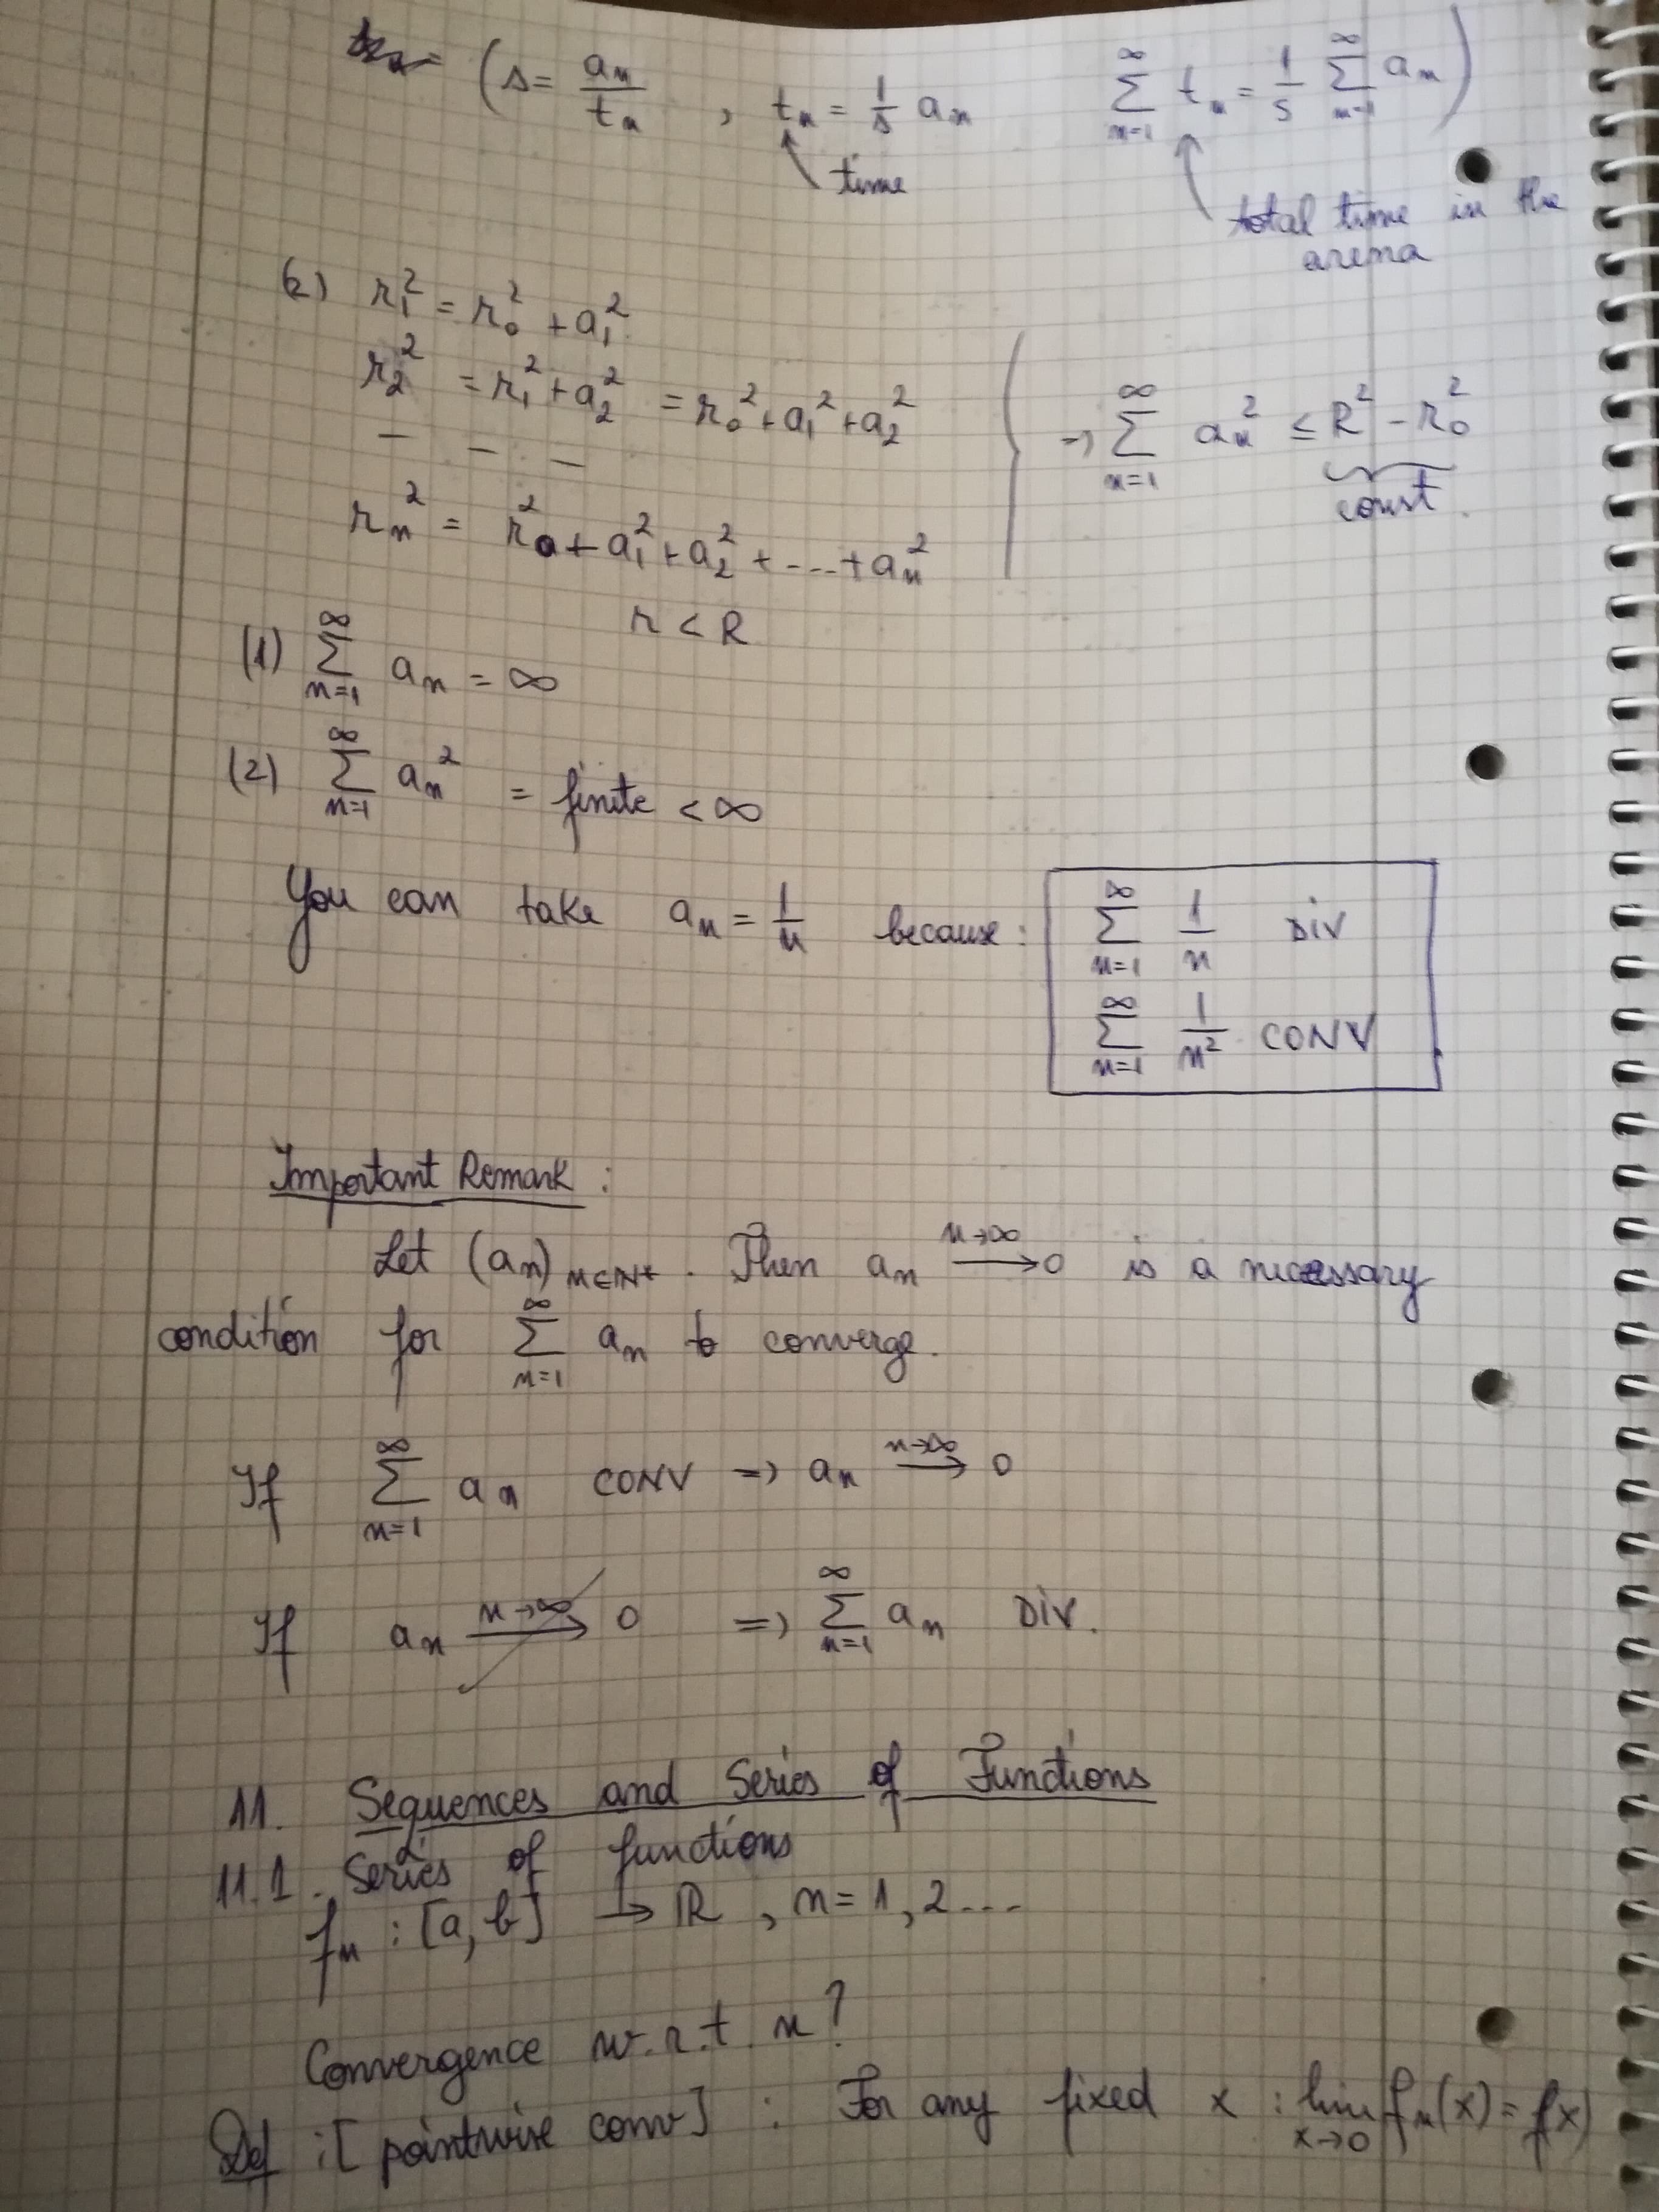 (s = a_n / t_n , t_n = 1/s a_n ∑_{n=1}^∞ t_n = 1/s ∑_{n=1}^∞ a_n)
time
total time in the
arena
2) r_1^2 = r_0^2 + a_1^2
r_2^2 = r_1^2 + a_2^2 = r_0^2 + a_1^2 + a_2^2
- - -
r_n^2 = r_0^2 + a_1^2 + a_2^2 + ... + a_n^2
⇒ ∑_{n=1}^∞ a_n^2 ≤ R^2 - r_0^2
const.
r < R
(1) ∑_{n=1}^∞ a_n = ∞
(2) ∑_{n=1}^∞ a_n^2 = finite < ∞
You can take a_n = 1/n because:
∑_{n=1}^∞ 1/n DIV
∑_{n=1}^∞ 1/n^2 CONV
Important Remark:
Let (a_n)_{n∈ℕ*}. Then a_n →^{n→∞} 0 is a necessary
condition for ∑_{n=1}^∞ a_n to converge.
If ∑_{n=1}^∞ a_n CONV ⇒ a_n →^{n→∞} 0
If a_n ↛^{n→∞} 0 ⇒ ∑_{n=1}^∞ a_n DIV.
11. Sequences and Series of Functions
11.1. Series of functions
f_n : [a, b] → ℝ , n = 1, 2 ...
Convergence w.r.t. n?
Def : [pointwise conv] : For any fixed x : lim_{x→0} f_n(x) = f(x)